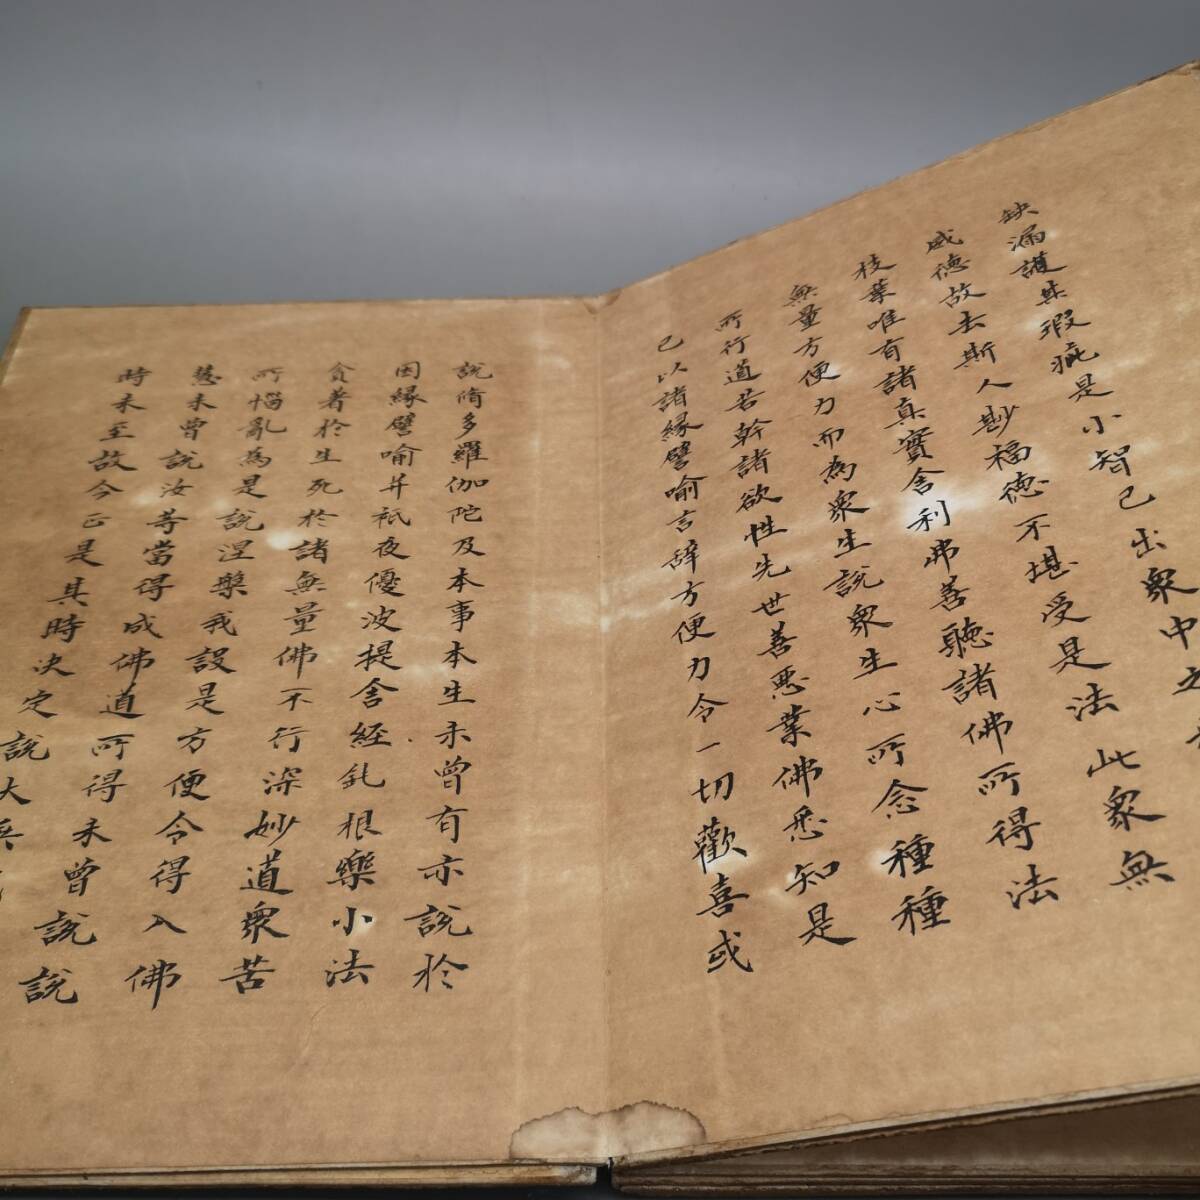 缺漏護其瑕疵是小智已出衆中之
威德故去斯人尠福德不堪受是法此衆無
枝葉唯有諸真實舍利弗善聽諸佛所得法
無量方便力而為衆生說衆生心所念種種
所行道若幹諸欲性先世善惡業佛悉知是
已以諸緣譬喻言辞方便力令一切歡喜或
說脩多羅伽陀及本事本生未曾有亦說於
因緣譬喻并祇夜優波提舍經鈍根樂小法
貪著於生死於諸無量佛不行深妙道衆苦
所惱亂為是說涅槃我設是方便令得入佛
慧未曾說汝等當得成佛道所得未曾說說
時未至故今正是其時決定說大